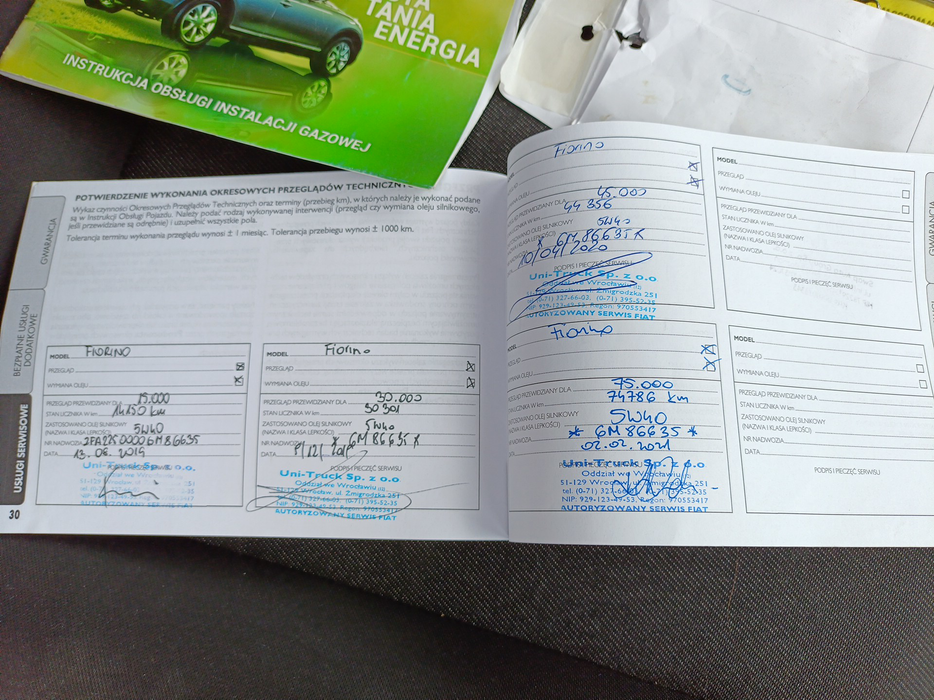 TANIA
ENERGIA
INSTRUKCJA OBSŁUGI INSTALACJI GAZOWEJ
GWARANCJA
BEZPŁATNE USŁUGI
DODATKOWE
USŁUGI SERWISOWE
POTWIERDZENIE WYKONANIA OKRESOWYCH PRZEGLĄDÓW
Wykaz czynności Okresowych Przeglądów Technicznych oraz terminy (przebieg km), w których należy je wykonać podane
są w Instrukcji Obsługi Pojazdu. Należy podać rodzaj wykonywanej interwencji (przegląd czy wymiana oleju silnikowego,
jeśli przewidziane są odrębnie) i uzupełnić wszystkie pola.
Tolerancja terminu wykonania przeglądu wynosi ± 1 miesiąc. Tolerancja przebiegu wynosi ± 1000 km.
MODEL FIORINO
PRZEGLĄD
WYMIANA OLEJU
PRZEGLĄD PRZEWIDZIANY DLA 15.000
STAN LICZNIKA W km 14150 km
ZASTOSOWANO OLEJ SILNIKOWY
(NAZWA I KLASA LEPKOŚCI) 5W40
NR NADWOZIA
DATA 13.06.2019
Uni-Truck Sp. z o.o.
30
MODEL Fiorino
PRZEGLĄD
WYMIANA OLEJU
PRZEGLĄD PRZEWIDZIANY DLA 30.000
STAN LICZNIKA W km 30301
ZASTOSOWANO OLEJ SILNIKOWY 5W40
(NAZWA I KLASA LEPKOŚCI)
NR NADWOZIA * 6M86635 *
DATA
PODPIS I PIECZĘĆ SERWISU
Uni-Truck Sp. z o.o
Oddział we Wrocławiu
51-129 Wrocław, ul. Żmigrodzka 251
(0-71) 395-52-35
Regon: 970553417
AUTORYZOWANY SERWIS FIAT
Fiorino
45.000
PRZEGLĄD PRZEWIDZIANY DLA 44356
STAN LICZNIKA W km
ZASTOSOWANO OLEJ SILNIKOWY 5W40
(NAZWA I KLASA LEPKOŚCI) * 6M86635 *
10/04/2020
PODPIS I PIECZĘĆ SERWISU
Uni-Truck Sp. z o.o
Oddział we Wrocławiu
ul. Żmigrodzka 251
tel. (0-71) 327-66-03, (0-71) 395-52-35
NIP: 929-123-49-53, Regon: 970553417
AUTORYZOWANY SERWIS FIAT
Fiorino
PRZEGLĄD
WYMIANA OLEJU
PRZEGLĄD PRZEWIDZIANY DLA 75.000
STAN LICZNIKA W km 74786 km
ZASTOSOWANO OLEJ SILNIKOWY 5W40
(NAZWA I KLASA LEPKOŚCI)
NR NADWOZIA * 6M86635 *
DATA 02.02.2021
Uni-Truck Sp. z o.o
Oddział we Wrocławiu
51-129 Wrocław, ul. Żmigrodzka 251
tel. (0-71) 327-66 395-52-35
NIP: 929-123-49-53, Regon: 970553417
AUTORYZOWANY SERWIS FIAT
MODEL
PRZEGLĄD
WYMIANA OLEJU
PRZEGLĄD PRZEWIDZIANY DLA
STAN LICZNIKA W km
ZASTOSOWANO OLEJ SILNIKOWY
(NAZWA I KLASA LEPKOŚCI)
NR NADWOZIA
DATA
PODPIS I PIECZĘĆ SERWISU
MODEL
PRZEGLĄD
WYMIANA OLEJU
PRZEGLĄD PRZEWIDZIANY DLA
STAN LICZNIKA W km
ZASTOSOWANO OLEJ SILNIKOWY
(NAZWA I KLASA LEPKOŚCI)
NR NADWOZIA
DATA
PODPIS I PIECZĘĆ SERWISU
GWARANCJA